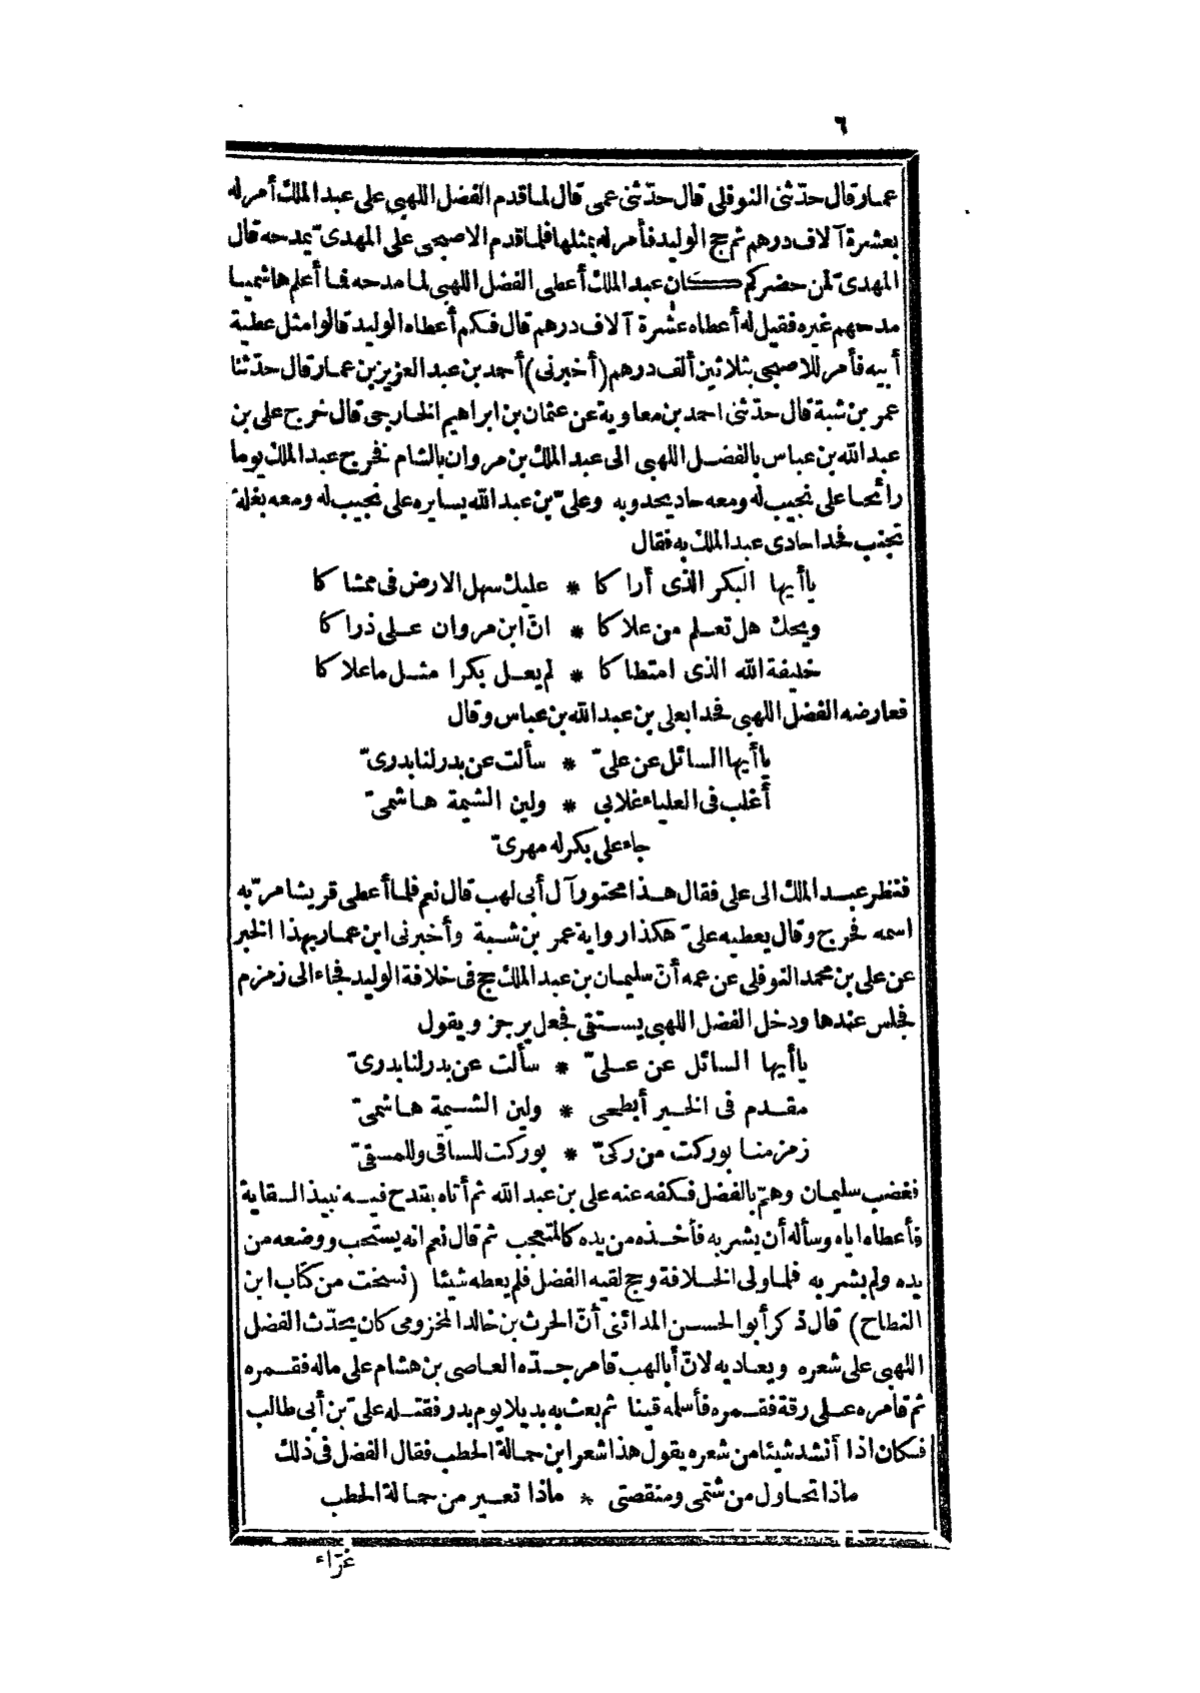 ٦
عمار قال حدّثنى النوفلى قال حدّثنى عمى قال لما قدم الفضل اللهبى على عبد الملك أمر له
بعشرة آلاف درهم ثم حج الوليد فأمر له بمثلها فلما قدم الاصبحى على المهدىّ يمدحه قال
المهدىّ لمن حضركم كان عبد الملك أعطى الفضل اللهبى لما مدحه فما أعلم هاشميا
مدحهم غيره فقيل له أعطاه عشرة آلاف درهم قال فكم أعطاه الوليد قالوا مثل عطية
أبيه فأمر للاصبحى بثلاثين ألف درهم (أخبرنى) أحمد بن عبد العزيز بن عمار قال حدّثنا
عمر بن شبة قال حدّثنى احمد بن معاوية عن عثمان بن ابراهيم الخارجى قال خرج على بن
عبد الله بن عباس بالفضل اللهبى الى عبد الملك بن مروان بالشام فخرج عبد الملك يوما
رائحا على نجيب له ومعه حاد يحدو به وعلىّ بن عبد الله يسايره على نجيب له ومعه بغلة
تجنب فحدا حادى عبد الملك به فقال
ياأيها البكر الذى أراكا * عليك سهل الارض فى ممشاكا
ويحك هل تعلم من علاكا * انّ ابن مروان على ذراكا
خليفة الله الذى امتطاكا * لم يعل بكرا مثل ما علاكا
فعارضه الفضل اللهبى فحدا بعلى بن عبد الله بن عباس وقال
ياأيها السائل عن علىّ * سألت عن بدر لنا بدرىّ
أغلب فى العلياء غلابى * ولين الشيمة هاشمىّ
جاء على بكر له مهرىّ
فنظر عبد الملك الى على فقال هذا مجنون آل أبى لهب قال نعم فلما أعطى قريشا مرّ به
اسمه فخرج وقال يعطيه علىّ هكذا رواية عمر بن شبة وأخبرنى ابن عمار بهذا الخبر
عن على بن محمد النوفلى عن عمه أنّ سليمان بن عبد الملك حج فى خلافة الوليد فجاء الى زمزم
فجلس عندها ودخل الفضل اللهبى يستقى فجعل يرجز ويقول
ياأيها السائل عن علىّ * سألت عن بدر لنا بدرىّ
مقدم فى الخير أبطحى * ولين الشيمة هاشمىّ
زمزمنا بوركت من ركىّ * بوركت للساقى وللمسقىّ
فغضب سليمان وهمّ بالفضل فكفه عنه على بن عبد الله ثم أتاه بقدح فيه نبيذ السقاية
فأعطاه اياه وسأله أن يشربه فأخذه من يده كالمتعجب ثم قال نعم انه يستحب ووضعه من
يده ولم يشربه فلما ولى الخلافة وحج لقيه الفضل فلم يعطه شيئا (نسخت من كتاب ابن
النطاح) قال ذكر أبو الحسن المدائنى أنّ الحرث بن خالد المخزومى كان يحدّث الفضل
اللهبى على شعره ويعاديه لانّ أبا لهب قامر جدّه العاصى بن هشام على ماله فقمره
ثم قامره على رقة فقمره فأسلمه قينا ثم بعث به بديلا يوم بدر فقتله علىّ بن أبى طالب
فكان اذا أنشد شيئا من شعره يقول هذا شعر ابن حمالة الحطب فقال الفضل فى ذلك
ماذا تحاول من شتمى ومنقصتى * ماذا تعير من حمالة الحطب
غرّاء